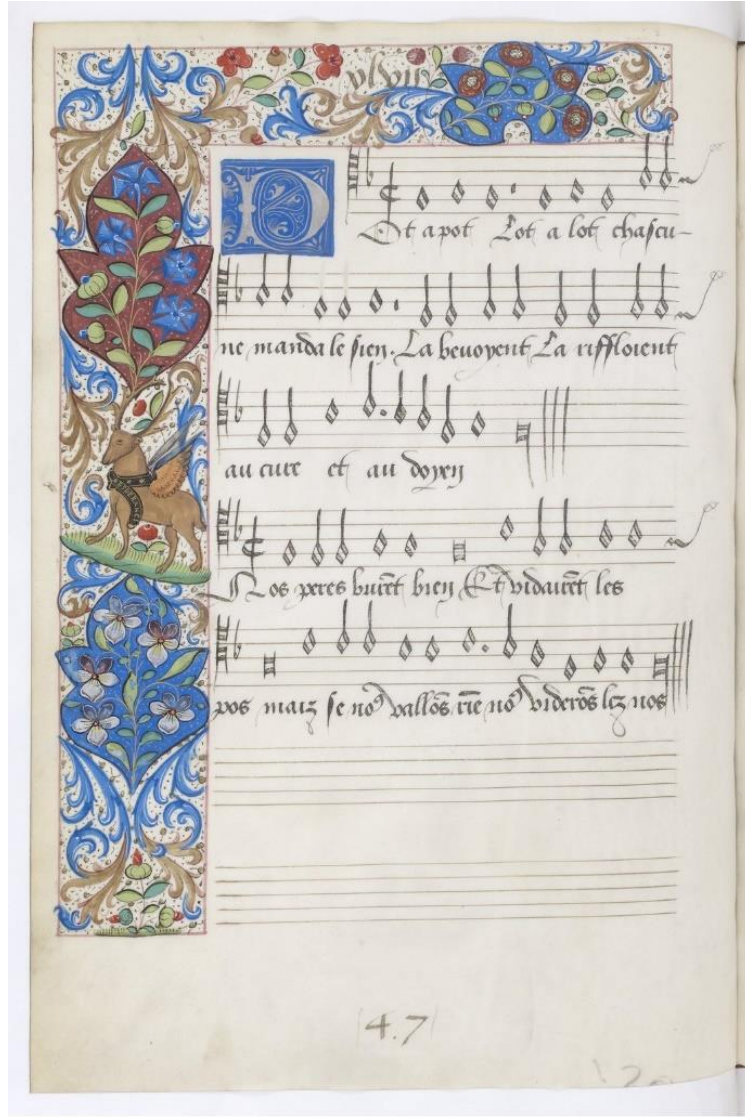 xlvii
D
Ot apot Lot a lot chascu-
ne manda le sien. La bevoyent La riffloient
au cure et au doyen
ESPERANCE
Nos peres burēt bien Et vidairēt les
pos maiz se noꝰ vallōs riē noꝰ viderōs lez nos
4.7